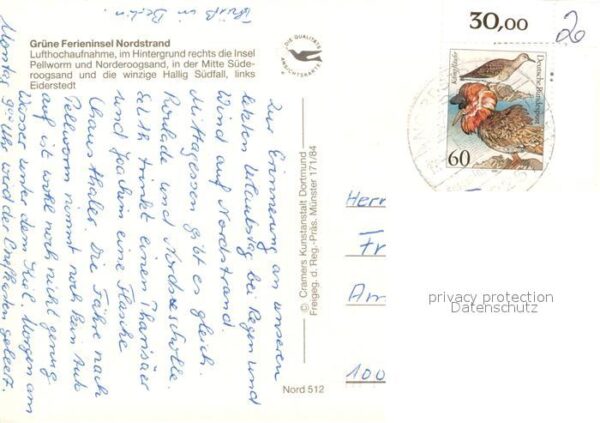 Tschüß in
Berlin.
Grüne Ferieninsel Nordstrand
Lufthochaufnahme, im Hintergrund rechts die Insel
Pellworm und Norderoogsand, in der Mitte Süde-
roogsand und die winzige Hallig Südfall, links
Eiderstedt
DIE QUALITÄTS
ANSICHTSKARTE
30,00
2
Kampfläufer
Deutsche Bundespost
60
Zur Erinnerung an unseren
letzten Urlaubstag bei Regen und
Wind auf Nordstrand.
Mittagessen gibt es gleich.
Roulade und Nordseescholle.
Edith trinkt einen Pharisäer
und Joachim eine Flasche
Die Fähre nach
Pellworm nimmt noch kein Auto
auf ist wohl noch nicht genug
Wasser unter dem Kiel. Morgen am
Montag 9 Uhr wird der Briefkasten geleert.
© Cramers Kunstanstalt Dortmund
Freigeg. d. Reg.-Präs. Münster 171/84
Nord 512
Herr
Fr
Am
100
privacy protection
Datenschutz